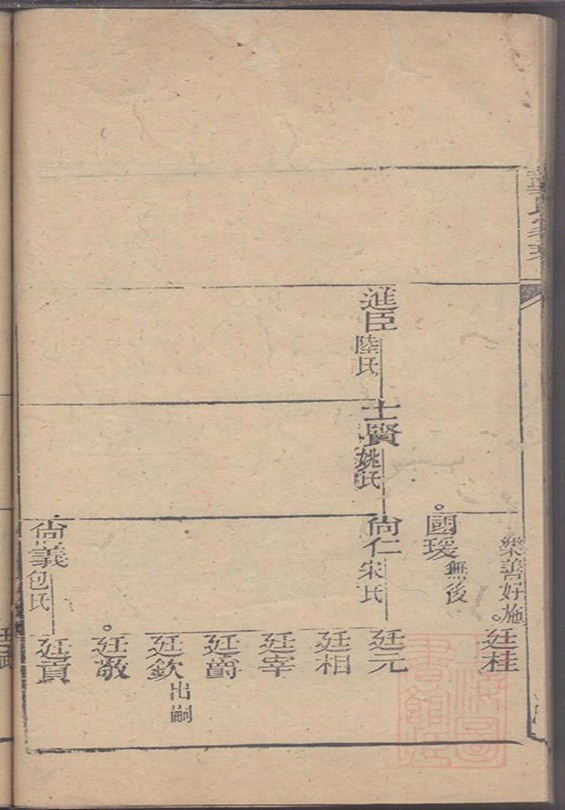 進臣
陸氏
士賢
姚氏
國瑗
無後
樂善好施
尚仁
宋氏
尚義
包氏
廷桂
廷元
廷相
廷宰
廷爵
廷欽
出嗣
廷敬
廷貢